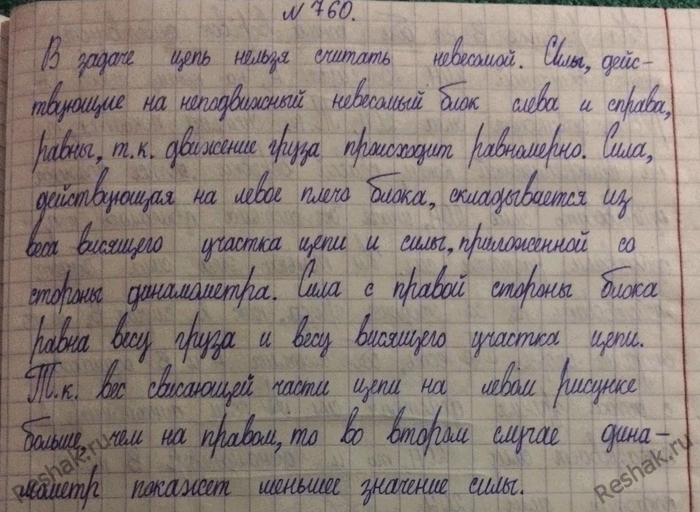 № 760.
В задаче цепь нельзя считать невесомой. Силы, дейс-
твующие на неподвижный невесомый блок слева и справа,
равны, т.к. движение груза происходит равномерно. Сила,
действующая на левое плечо блока, складывается из
веса висящего участка цепи и силы, приложенной со
стороны динамометра. Сила с правой стороны блока
равна весу груза и весу висящего участка цепи.
Т.к. вес свисающей части цепи на левом рисунке
больше, чем на правом, то во втором случае дина-
мометр покажет меньшее значение силы.
Reshak.ru
Reshak.ru